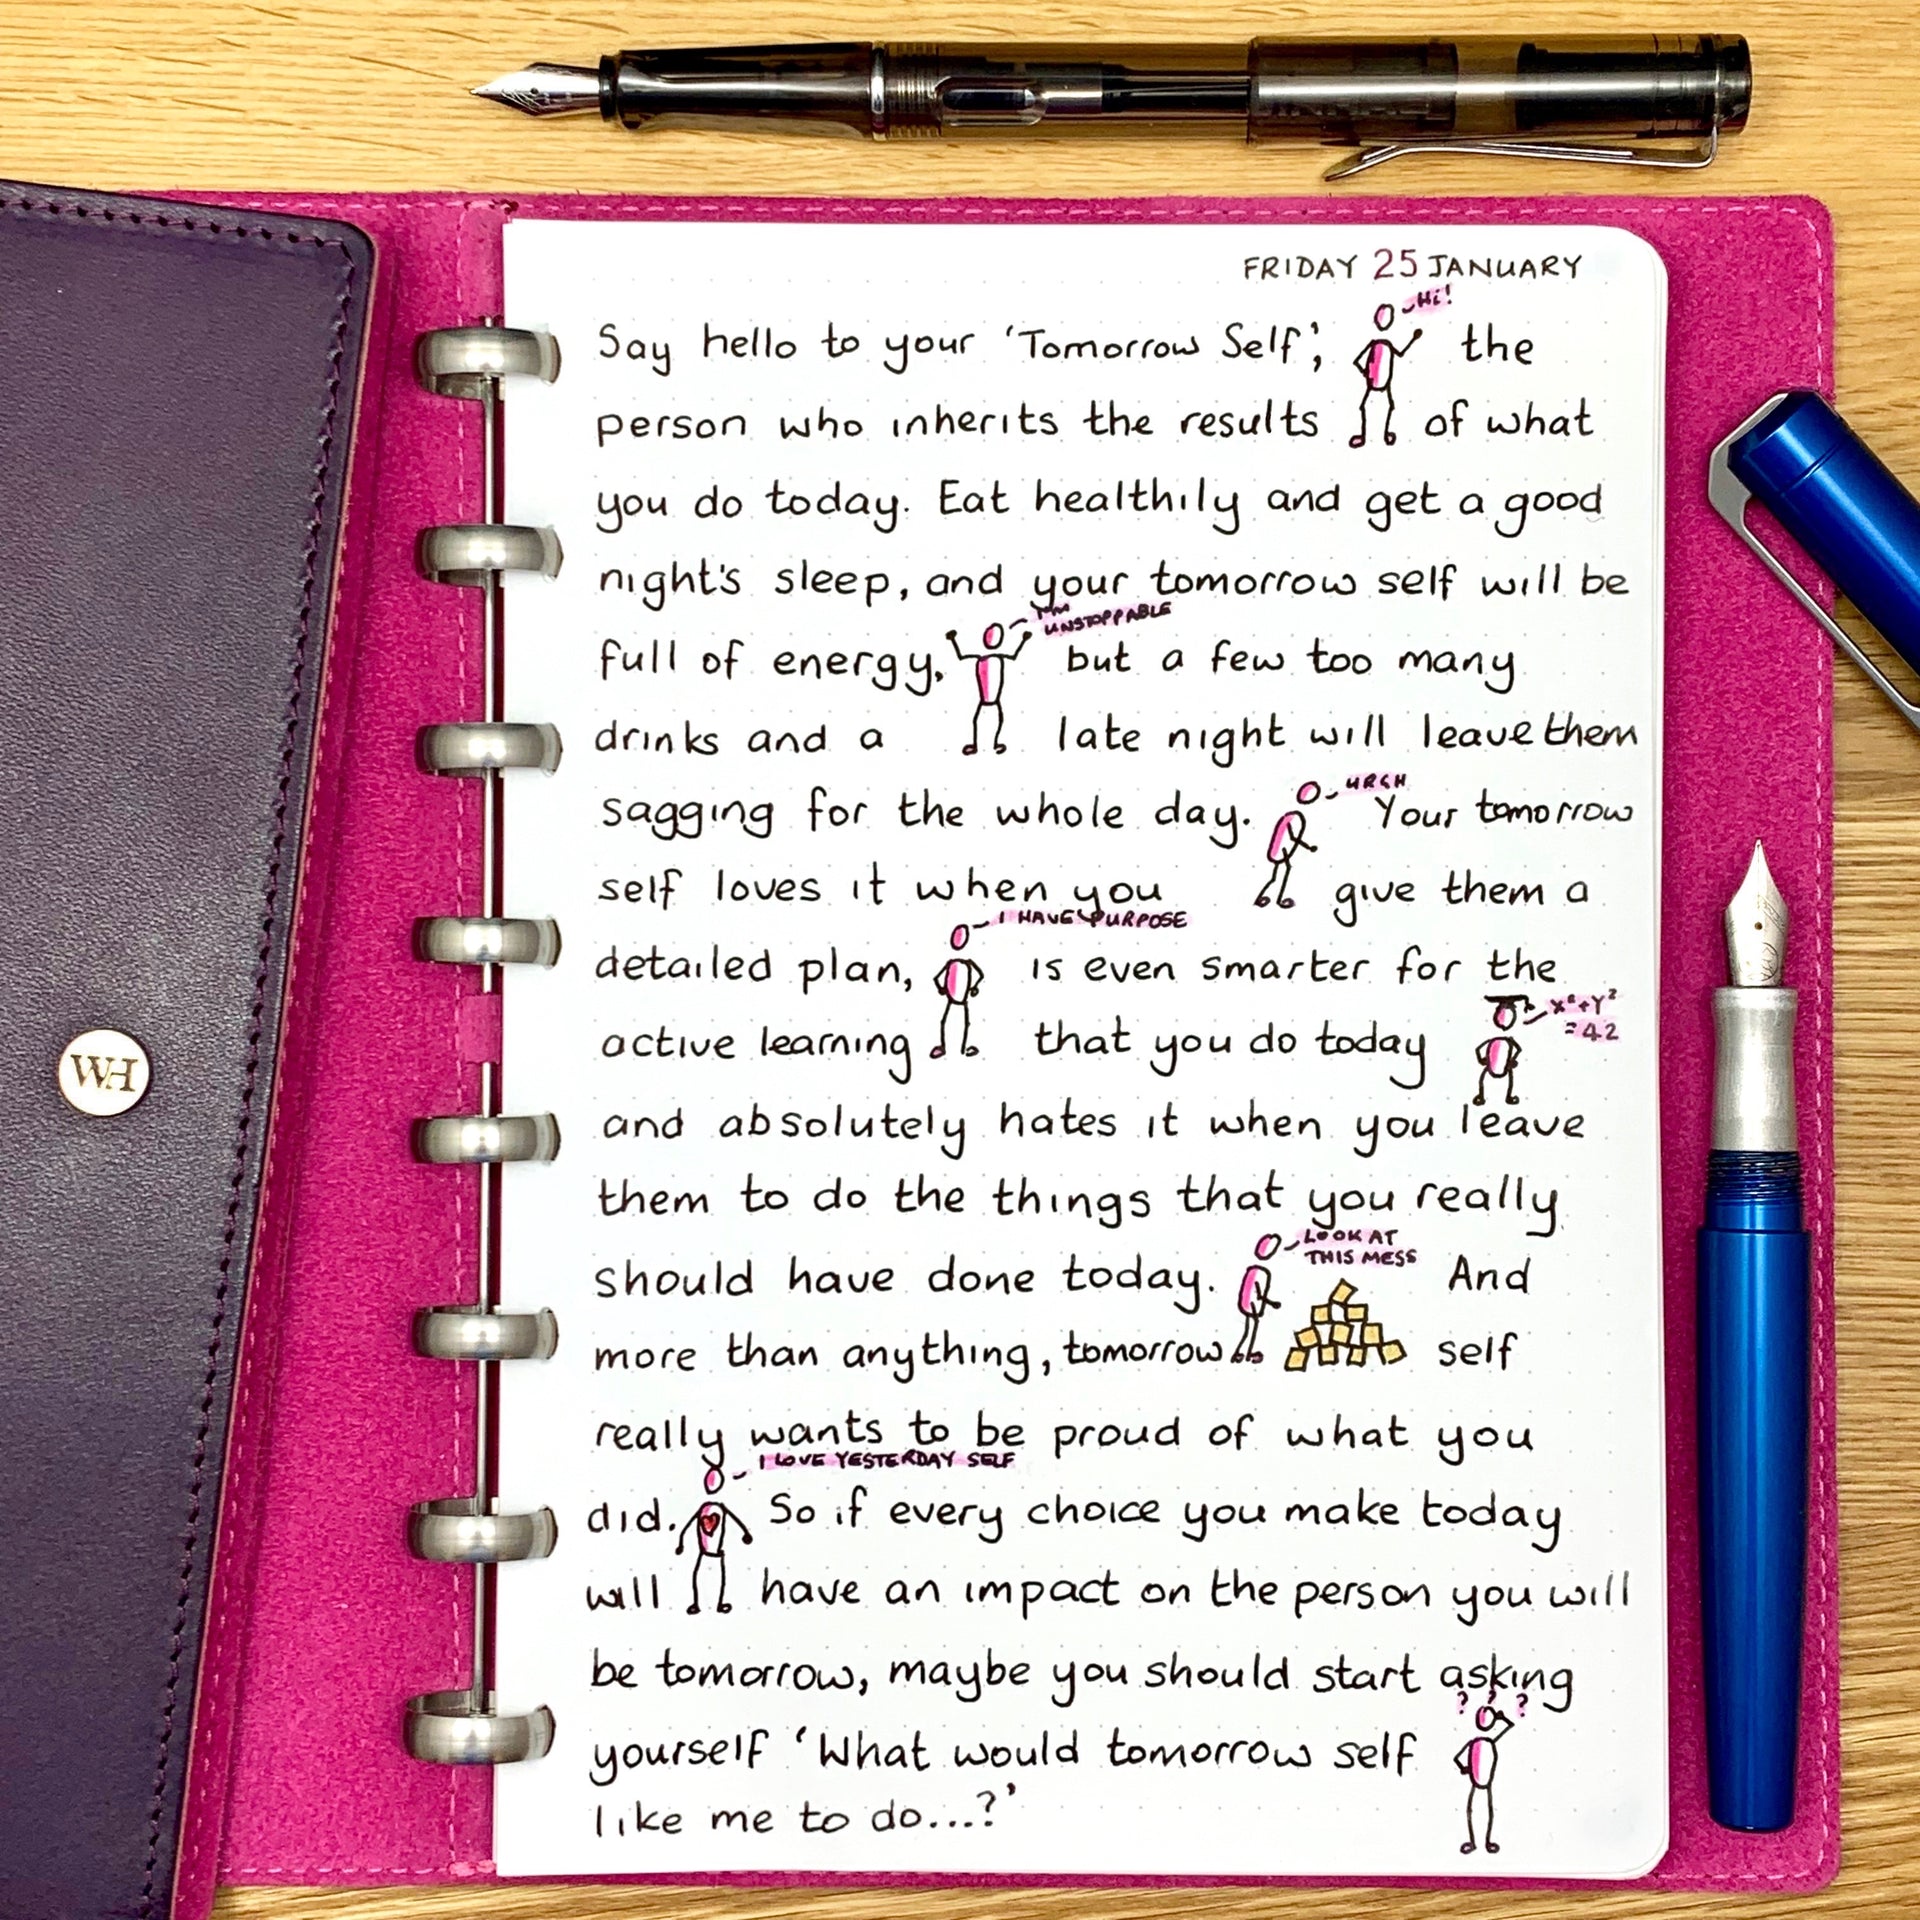 FRIDAY 25 JANUARY
Hi!
Say hello to your 'Tomorrow Self', the
person who inherits the results of what
you do today. Eat healthily and get a good
night's sleep, and your tomorrow self will be
I'M
UNSTOPPABLE
full of energy, but a few too many
drinks and a late night will leave them
URGH
sagging for the whole day. Your tomorrow
self loves it when you give them a
I HAVE PURPOSE
detailed plan, is even smarter for the
x²+y²
=42
active learning that you do today
and absolutely hates it when you leave
them to do the things that you really
LOOK AT
THIS MESS
should have done today. And
more than anything, tomorrow self
really wants to be proud of what you
I LOVE YESTERDAY SELF
did. So if every choice you make today
will have an impact on the person you will
be tomorrow, maybe you should start asking
? ? ?
yourself 'What would tomorrow self
like me to do...?'
WH